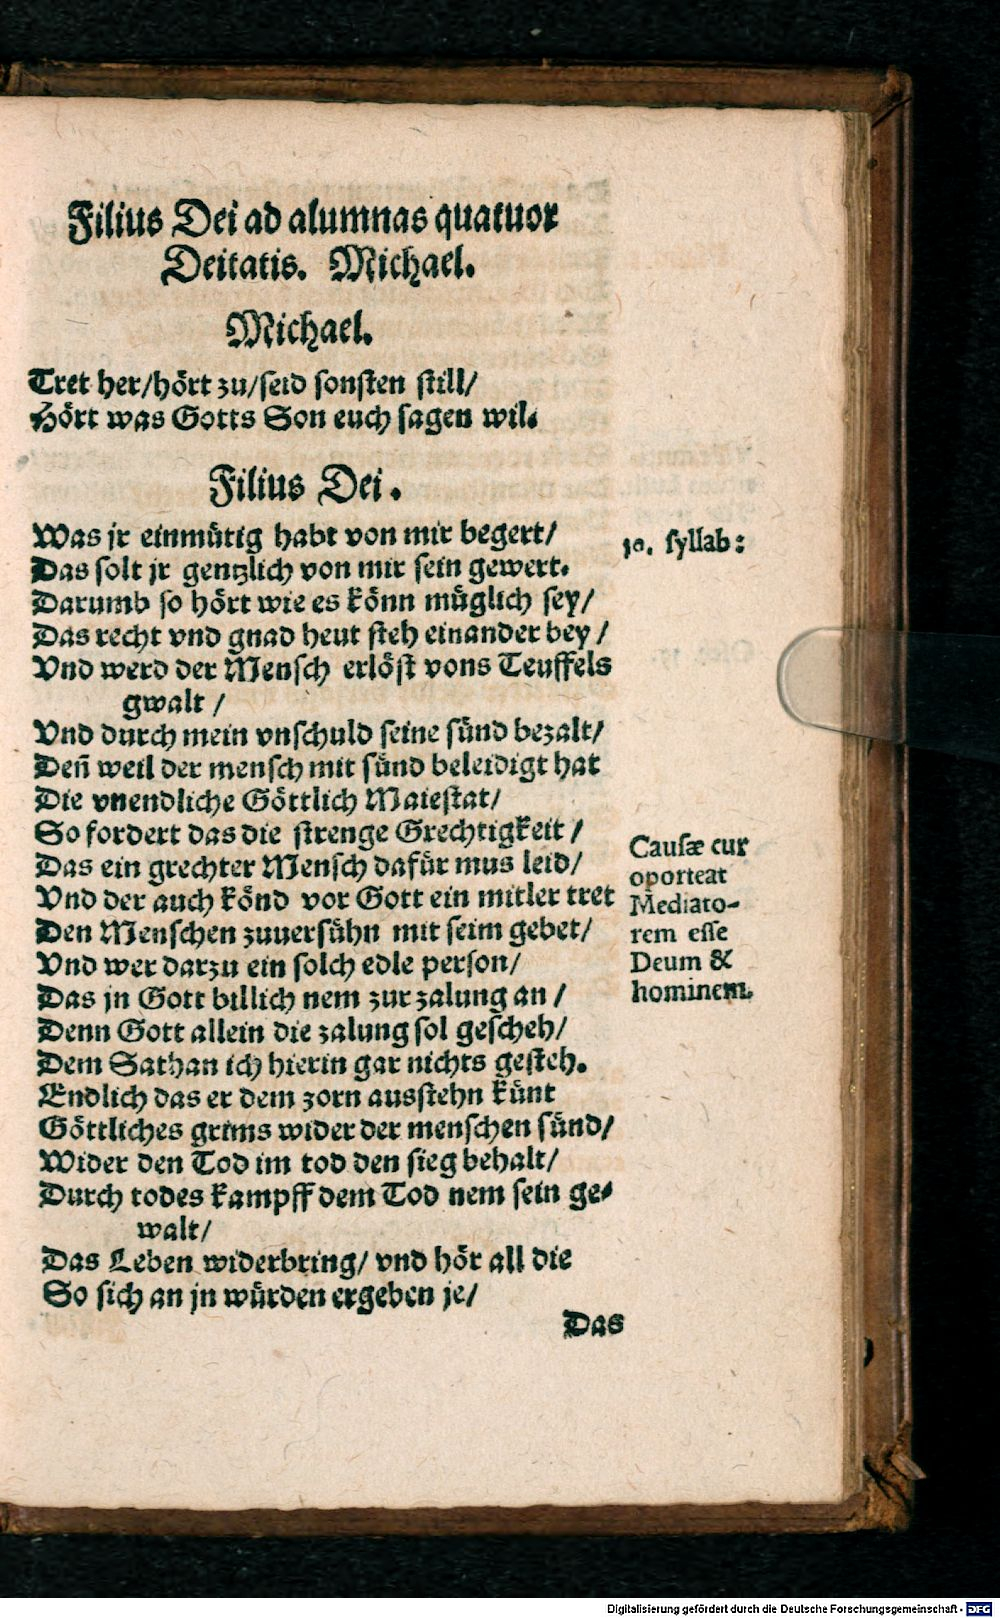 Filius Dei ad alumnas quatuor
Deitatis. Michael.
Michael.
Tret her/hört zu/seid sonsten still/
Hört was Gotts Son euch sagen wil.
Filius Dei.
Was jr einmütig habt von mir begert/
10. syllab:
Das solt jr gentzlich von mir sein gewert.
Darumb so hört wie es könn müglich sey/
Das recht vnd gnad heut steh einander bey/
Vnd werd der Mensch erlöst vons Teuffels
gwalt/
Vnd durch mein vnschuld seine sünd bezalt/
Deñ weil der mensch mit sünd beleidigt hat
Die vnendliche Göttlich Maiestat/
So fordert das die strenge Grechtigkeit/
Das ein grechter Mensch dafür mus leid/
Vnd der auch könd vor Gott ein mitler tret
Den Menschen zuuersühn mit seim gebet/
Vnd wer darzu ein solch edle person/
Das jn Gott billich nem zur zalung an/
Denn Gott allein die zalung sol gescheh/
Dem Sathan ich hierin gar nichts gesteh.
Endlich das er dem zorn ausstehn künt
Göttliches grims wider der menschen sünd/
Wider den Tod im tod den sieg behalt/
Durch todes kampff dem Tod nem sein ge-
walt/
Das Leben widerbring/ vnd hör all die
So sich an jn würden ergeben je/
Das
Causæ cur
oporteat
Mediato-
rem esse
Deum &
hominem.
Digitalisierung gefördert durch die Deutsche Forschungsgemeinschaft - DFG